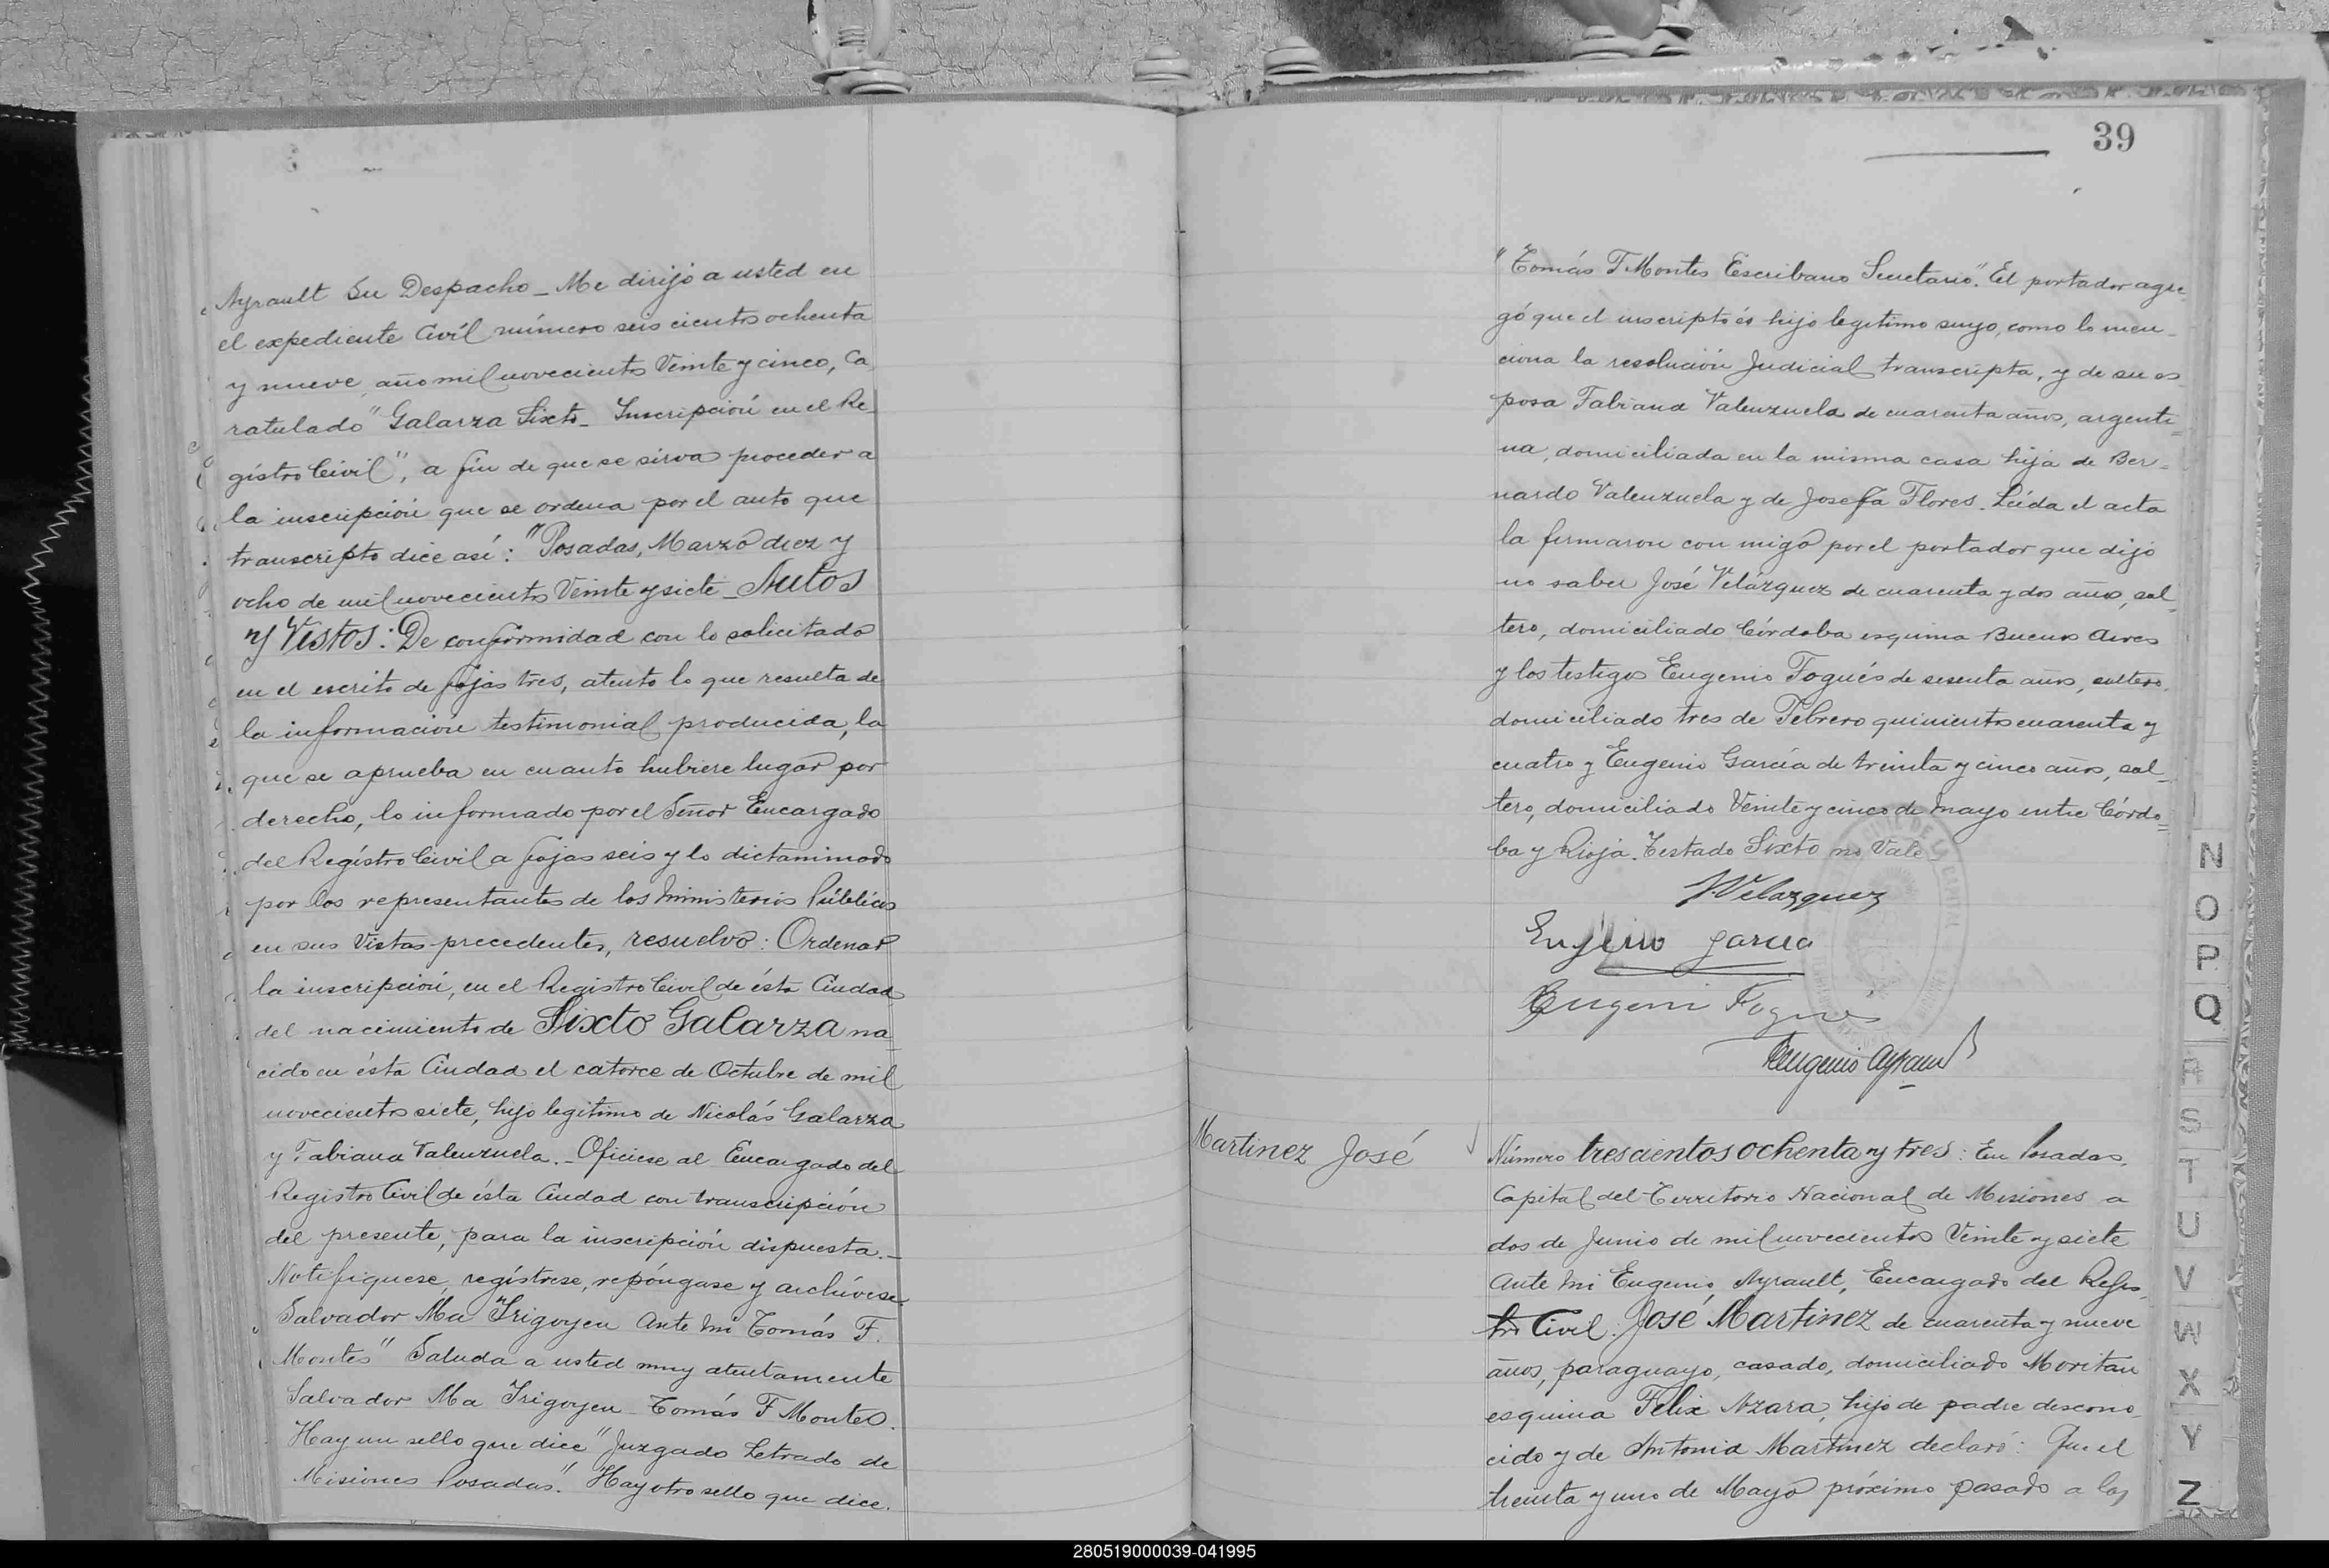 Ayrault Su Despacho_ Me dirijo a usted en
el expediente Civil número seis cientos ochenta
y nueve, año mil novecientos Veinte y cinco, Ca
ratulado "Galarza Sixto_ Inscripción en el Re
gistro Civil", a fin de que se sirva proceder a
la inscripción que se ordena por el auto que
transcripto dice así: "Posadas, Marzo diez y
ocho de mil novecientos Veinte y siete_ Autos
y Vistos: De conformidad con lo solicitado
en el escrito de fojas tres, atento lo que resulta de
la información testimonial producida, la
que se aprueba en cuanto hubiere lugar por
derecho, lo informado por el Señor Encargado
del Registro Civil a fojas seis y lo dictaminado
por los representantes de los Ministerios Públicos
en sus Vistas precedentes, resuelvo: Ordenar
la inscripción, en el Registro Civil de ésta Ciudad
del nacimiento de Sixto Galarza na
cido en ésta Ciudad el catorce de Octubre de mil
novecientos siete, hijo legitimo de Nicolás Galarza
y Fabiana Valenzuela._ Oficiese al Encargado del
Registro Civil de ésta Ciudad con transcripción
del presente, para la inscripción dispuesta._
Notifiquese, regístrese, repóngase y archívese.
Salvador Ma Irigoyen Ante Mi Tomás F.
Montes" Saluda a usted muy atentamente
Salvador Ma Irigoyen_ Tomás F Montes.
Hay un sello que dice "Juzgado Letrado de
Misiones Posadas". Hay otro sello que dice.
39
"Tomás F Montes Escribano Secretario". El portador agre
gó que el inscripto és hijo legitimo suyo, como lo men_
ciona la resolución Judicial transcripta, y de su es
posa Fabiana Valenzuela de cuarenta años, argenti=
na, domiciliada en la misma casa hija de Ber=
nardo Valenzuela y de Josefa Flores. Leida el acta
la firmaron con migo por el portador que dijo
no saber José Velázquez de cuarenta y dos años, sol_
tero, domiciliado Córdoba esquina Buenos Aires
y los testigos Eugenio Fogués de sesenta años, soltero,
domiciliado tres de Febrero quinientos cuarenta y
cuatro y Eugenio García de treinta y cinco años, sol_
tero, domiciliado Veinte y cinco de Mayo entre Córdo=
ba y Rioja. Testado Sixto no Vale_
J. Velazquez
Eugenio Garcia
Eugeni Fogués
Eugenio Ayrault
Martinez José
Número trescientos ochenta y tres: En Posadas,
Capital del Territorio Nacional de Misiones a
dos de Junio de mil novecientos Veinte y siete
Ante Mi Eugenio Ayrault, Encargado del Regis_
tro Civil: José Martinez de cuarenta y nueve
años, paraguayo, casado, domiciliado Moritan
esquina Felix Azara, hijo de padre descono_
cido y de Antonia Martinez declaró: Que el
treinta y uno de Mayo próximo pasado a las
N
O
P
Q
R
S
T
U
V
W
X
Y
Z
280519000039-041995